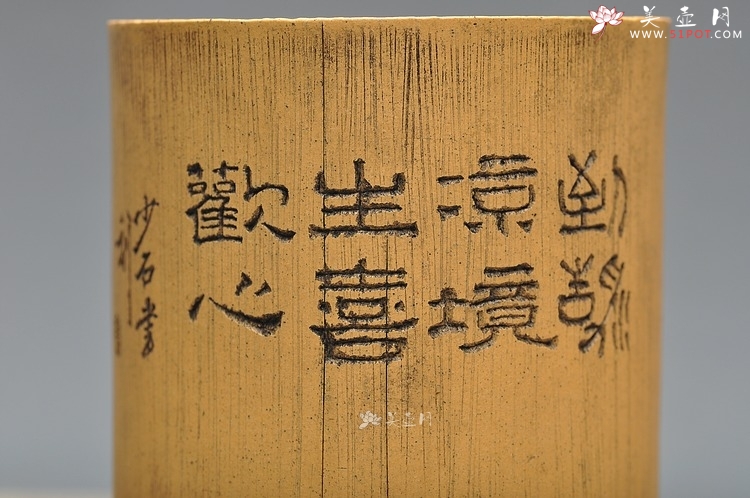 美壶网
WWW.51POT.COM
到清
凉境
生喜
歡心
少石
美壶网